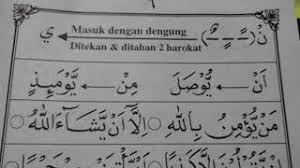 نْ (ـًــٍــٌ) Masuk dengan dengung ي
Ditekan & ditahan 2 harokat
اَنْ يُّوْصَلَ مِنْ يَّوْمَئِذٍ
مَنْ يُّؤْمِنْ بِاللّٰهِ ○ اِلَّا اَنْ يَّشَآءَ اللّٰهُ ○